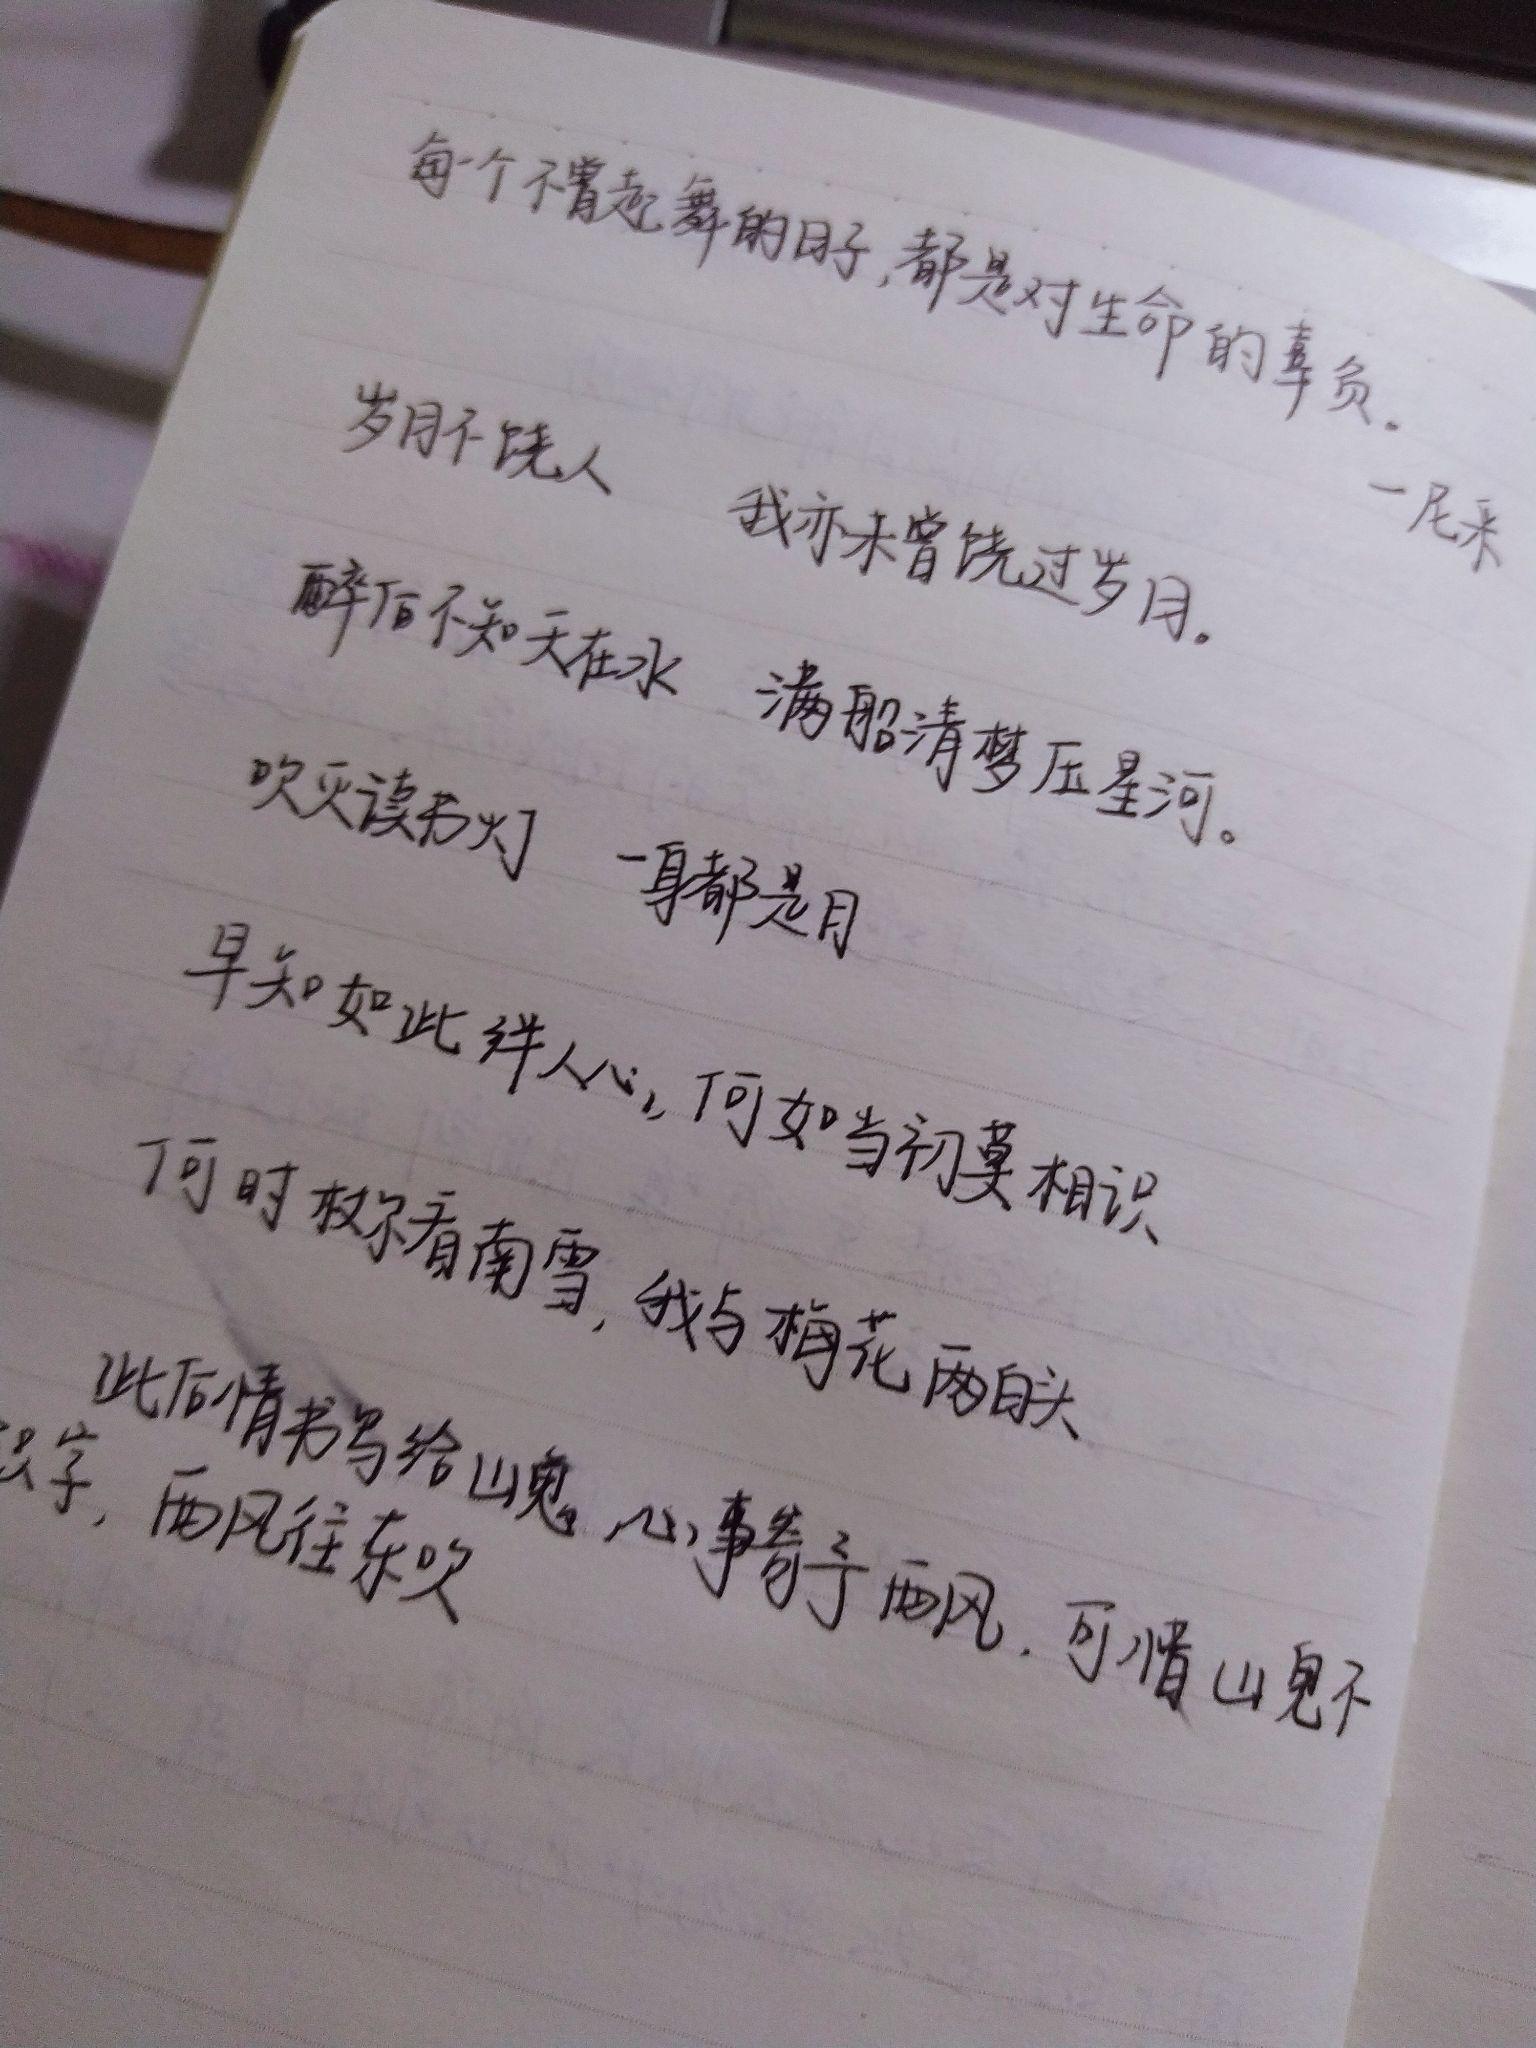 每一个不曾起舞的日子,都是对生命的辜负。
一尼采
岁月不饶人 我亦未曾饶过岁月。
醉后不知天在水 满船清梦压星河。
吹灭读书灯 一身都是月
早知如此绊人心,何如当初莫相识
何时杖尔看南雪,我与梅花两白头
此后情书写给山鬼,心事寄予西风.可惜山鬼不
识字,西风往东吹